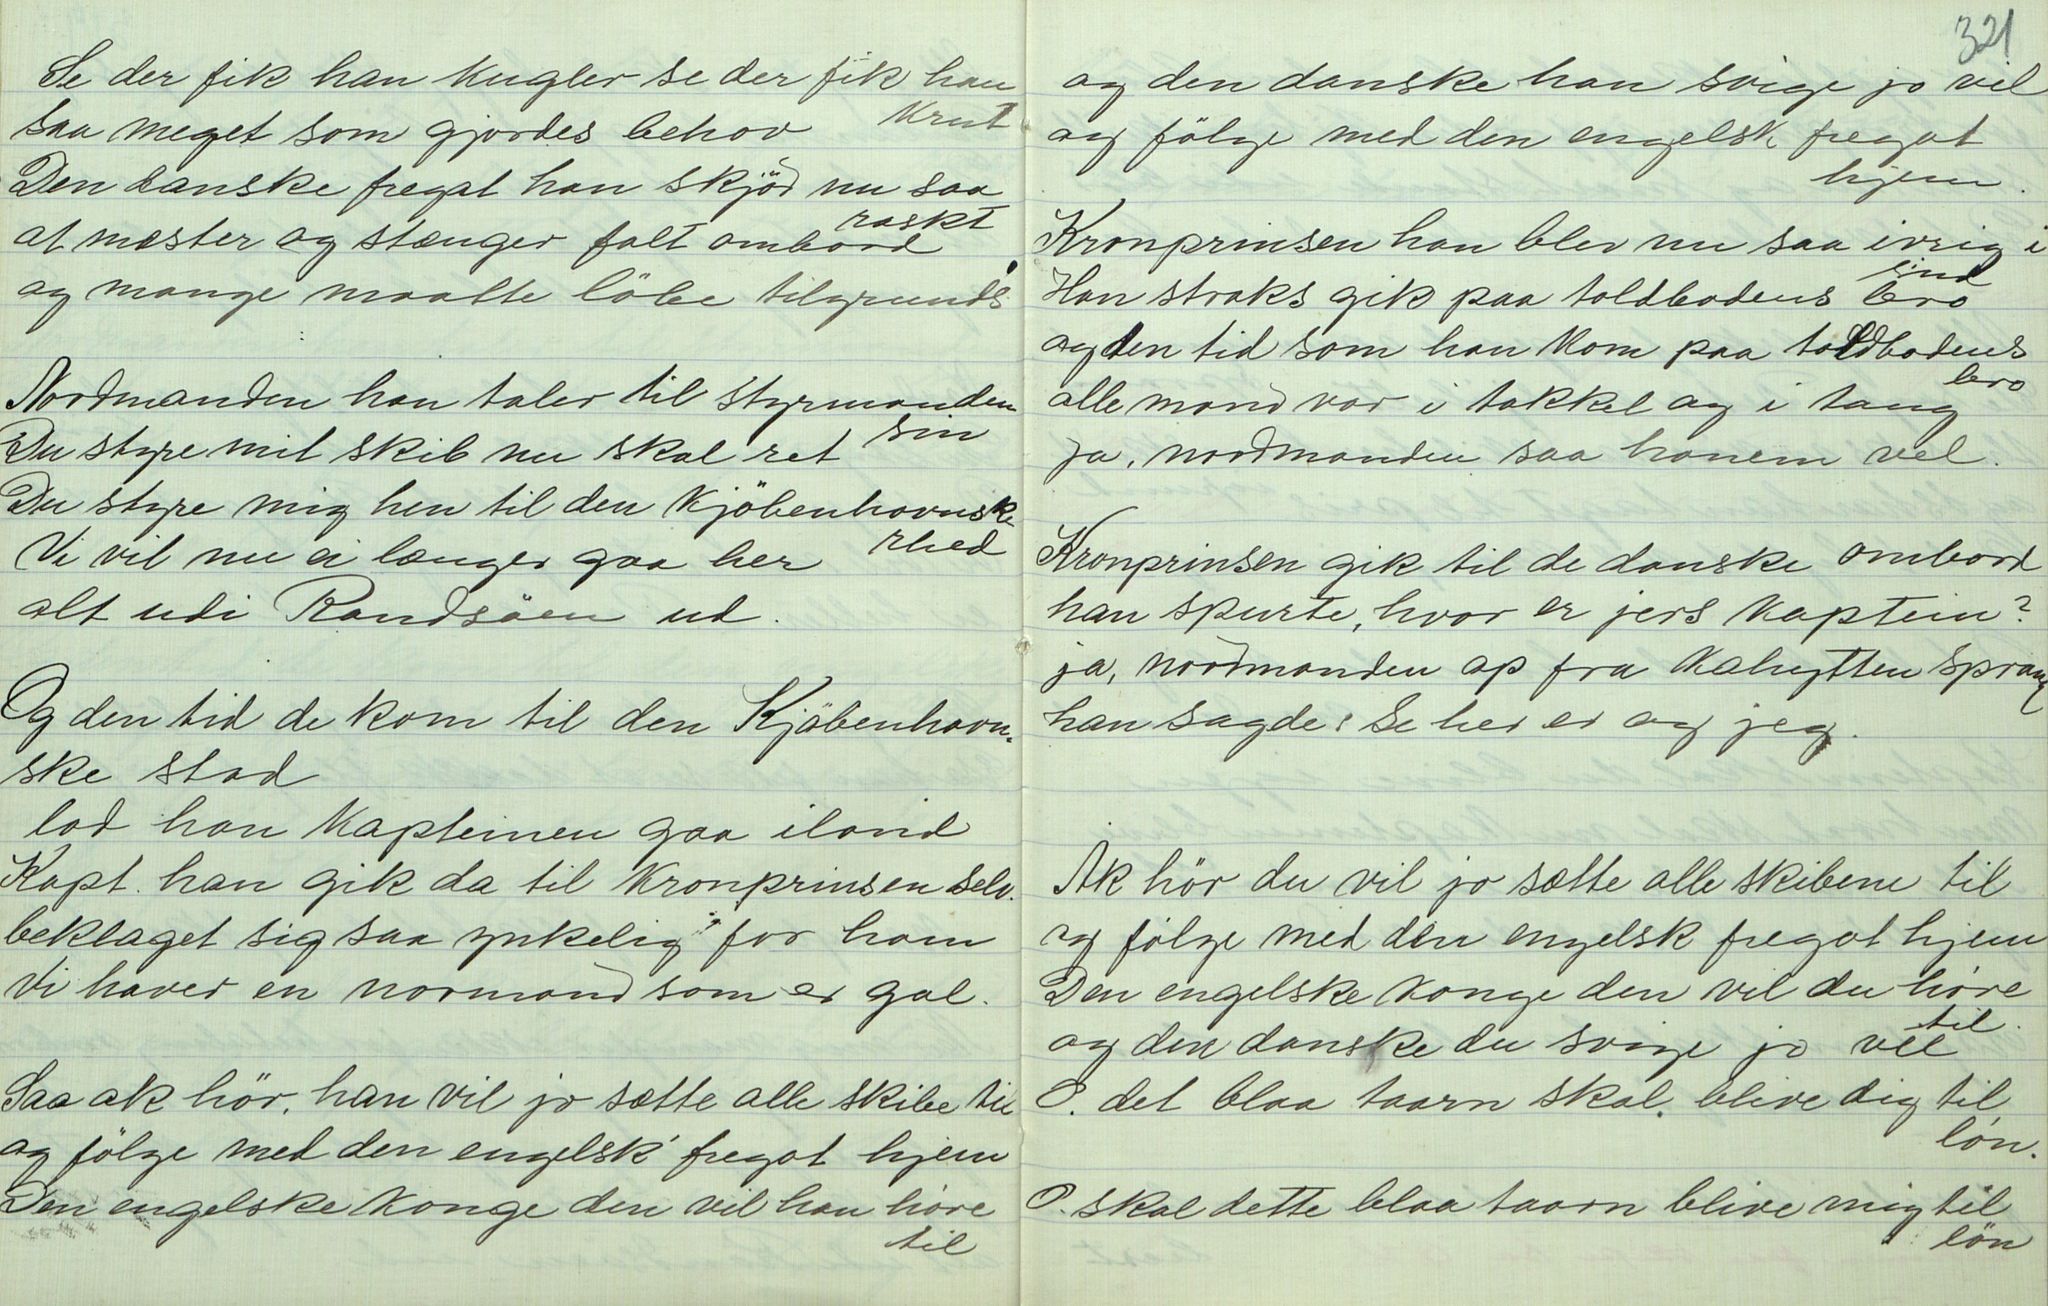 Se der fik han kugler se der fik han
krut
saa meget som gjordes behov
Den danske fregat han skjöd nu saa
raskt
at mester og stænger falt ombord
og mange maatte löbe tilgrunds

Nordmanden han taler til styrmanden
sin
Du styre mit skib nu skal ret
Du styre mig hen til den Kjöbenhavnske
rhed
Vi vil nu ei længer gaa her
alt udi Randsöen ud.

Og den tid de kom til den Kjöbenhavn-
ske stad
lod han Kapteinen gaa iland
Kapt. han gik da til Kronprinsen selv.
beklaget sig saa ynkelig for ham
Vi haver en normand som er gal.

Saa ak hör, han vil jo sætte alle skibe til
og fölge med den engelsk fregat hjem
Den engelske konge den vil han höre
til

321
og den danske han svige jo vil
og fölge med den engelsk fregat
hjem.
Kronprinsen han blev nu saa ivrig i
sind
Han straks gik paa toldbodens bro
og den tid som han kom paa toldbodens
bro
alle mand var i takkel og i taug
ja, nordmanden saa hanem vel.

Kronprinsen gik til de danske ombord
han spurte, hvor er jers kaptein?
ja, nordmanden op fra kahytten sprang
han sagde: Se her er og jeg.

Ak hör du vil jo sætte alle skibene til
og fölge med den engelsk fregat hjem
Den engelske konge den vil du höre
til.
og den danske du svige jo vil
O. det blaa taarn skal. blive dig til
lön.

O. skal dette blaa taarn blive mig til
lön